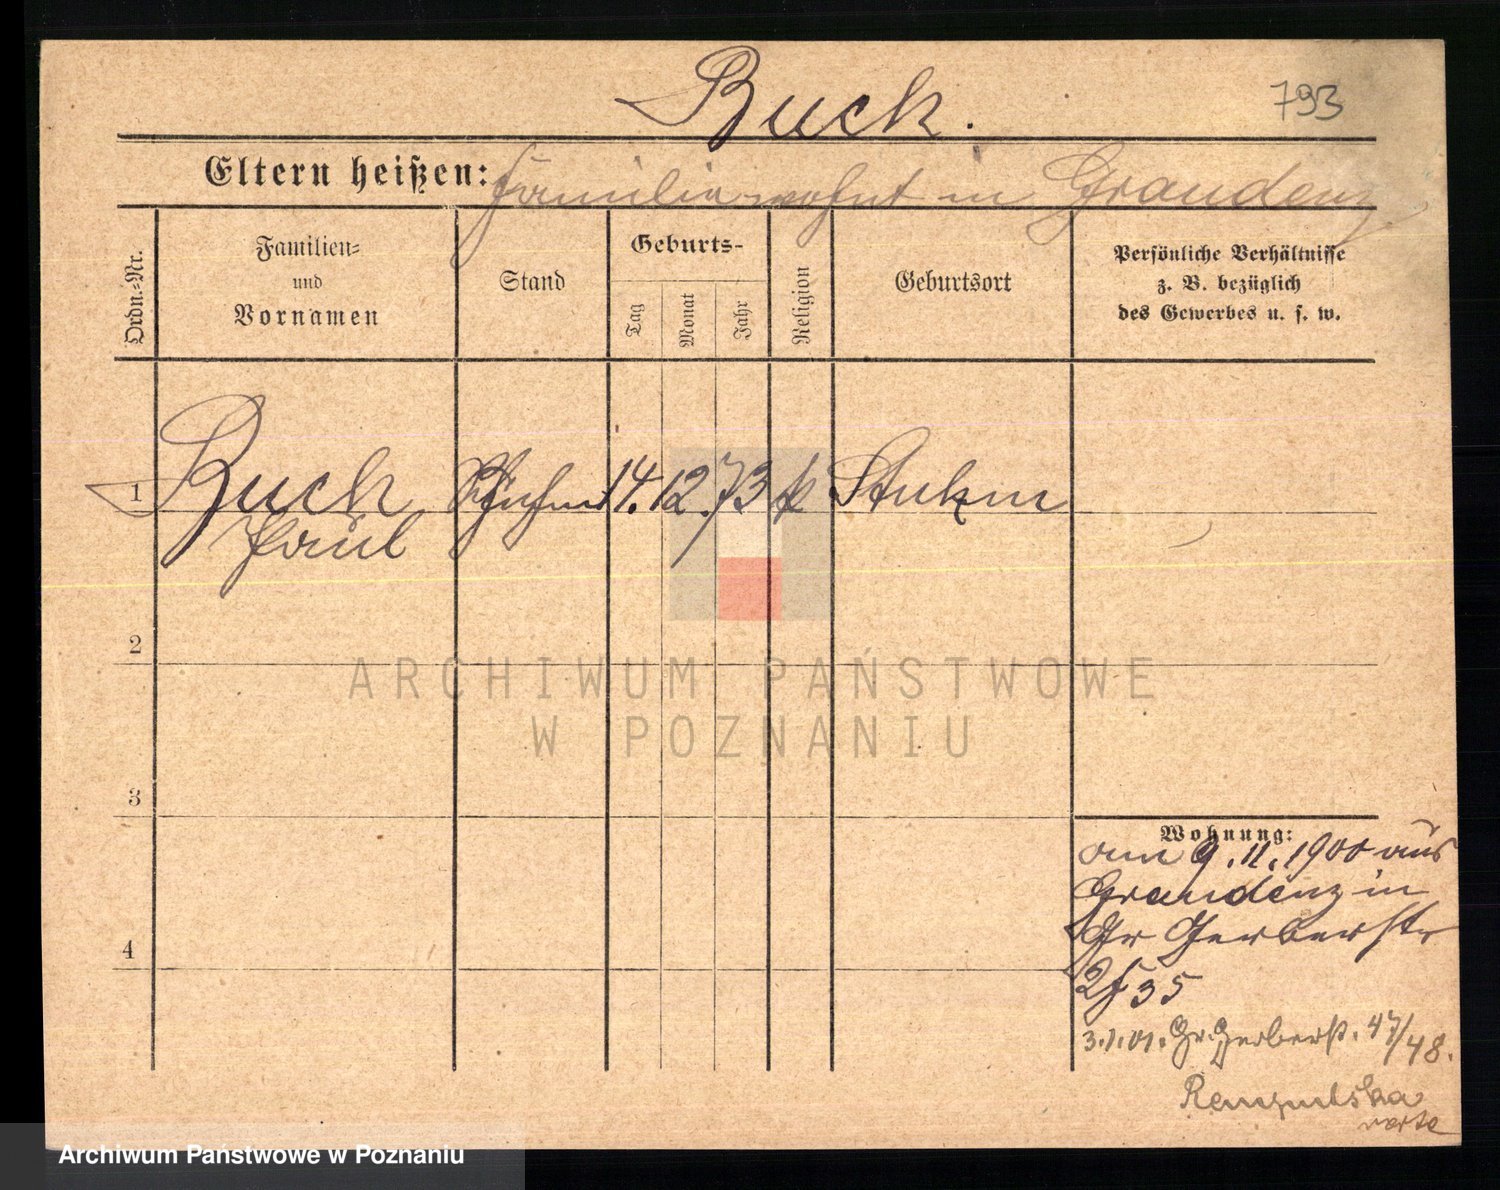 Buck.
793
Eltern heißen: Familie wohnt in Graudenz
Ordn.-Nr.
Familien=
und
Vornamen
Stand
Geburts-
Tag
Monat
Jahr
Religion
Geburtsort
Persönliche Verhältnisse
z. B. bezüglich
des Gewerbes u. s. w.
1
Buck 14. 12. 73 k Stuhm
Paul
2
ARCHIWUM PAŃSTWOWE
W POZNANIU
3
Wohnung:
am 9. 11. 1900 aus
Graudenz in
Gr Gerberstr
35
4
3.1.01. Gr. Gerberst. 47/48.
verte
Archiwum Państwowe w Poznaniu